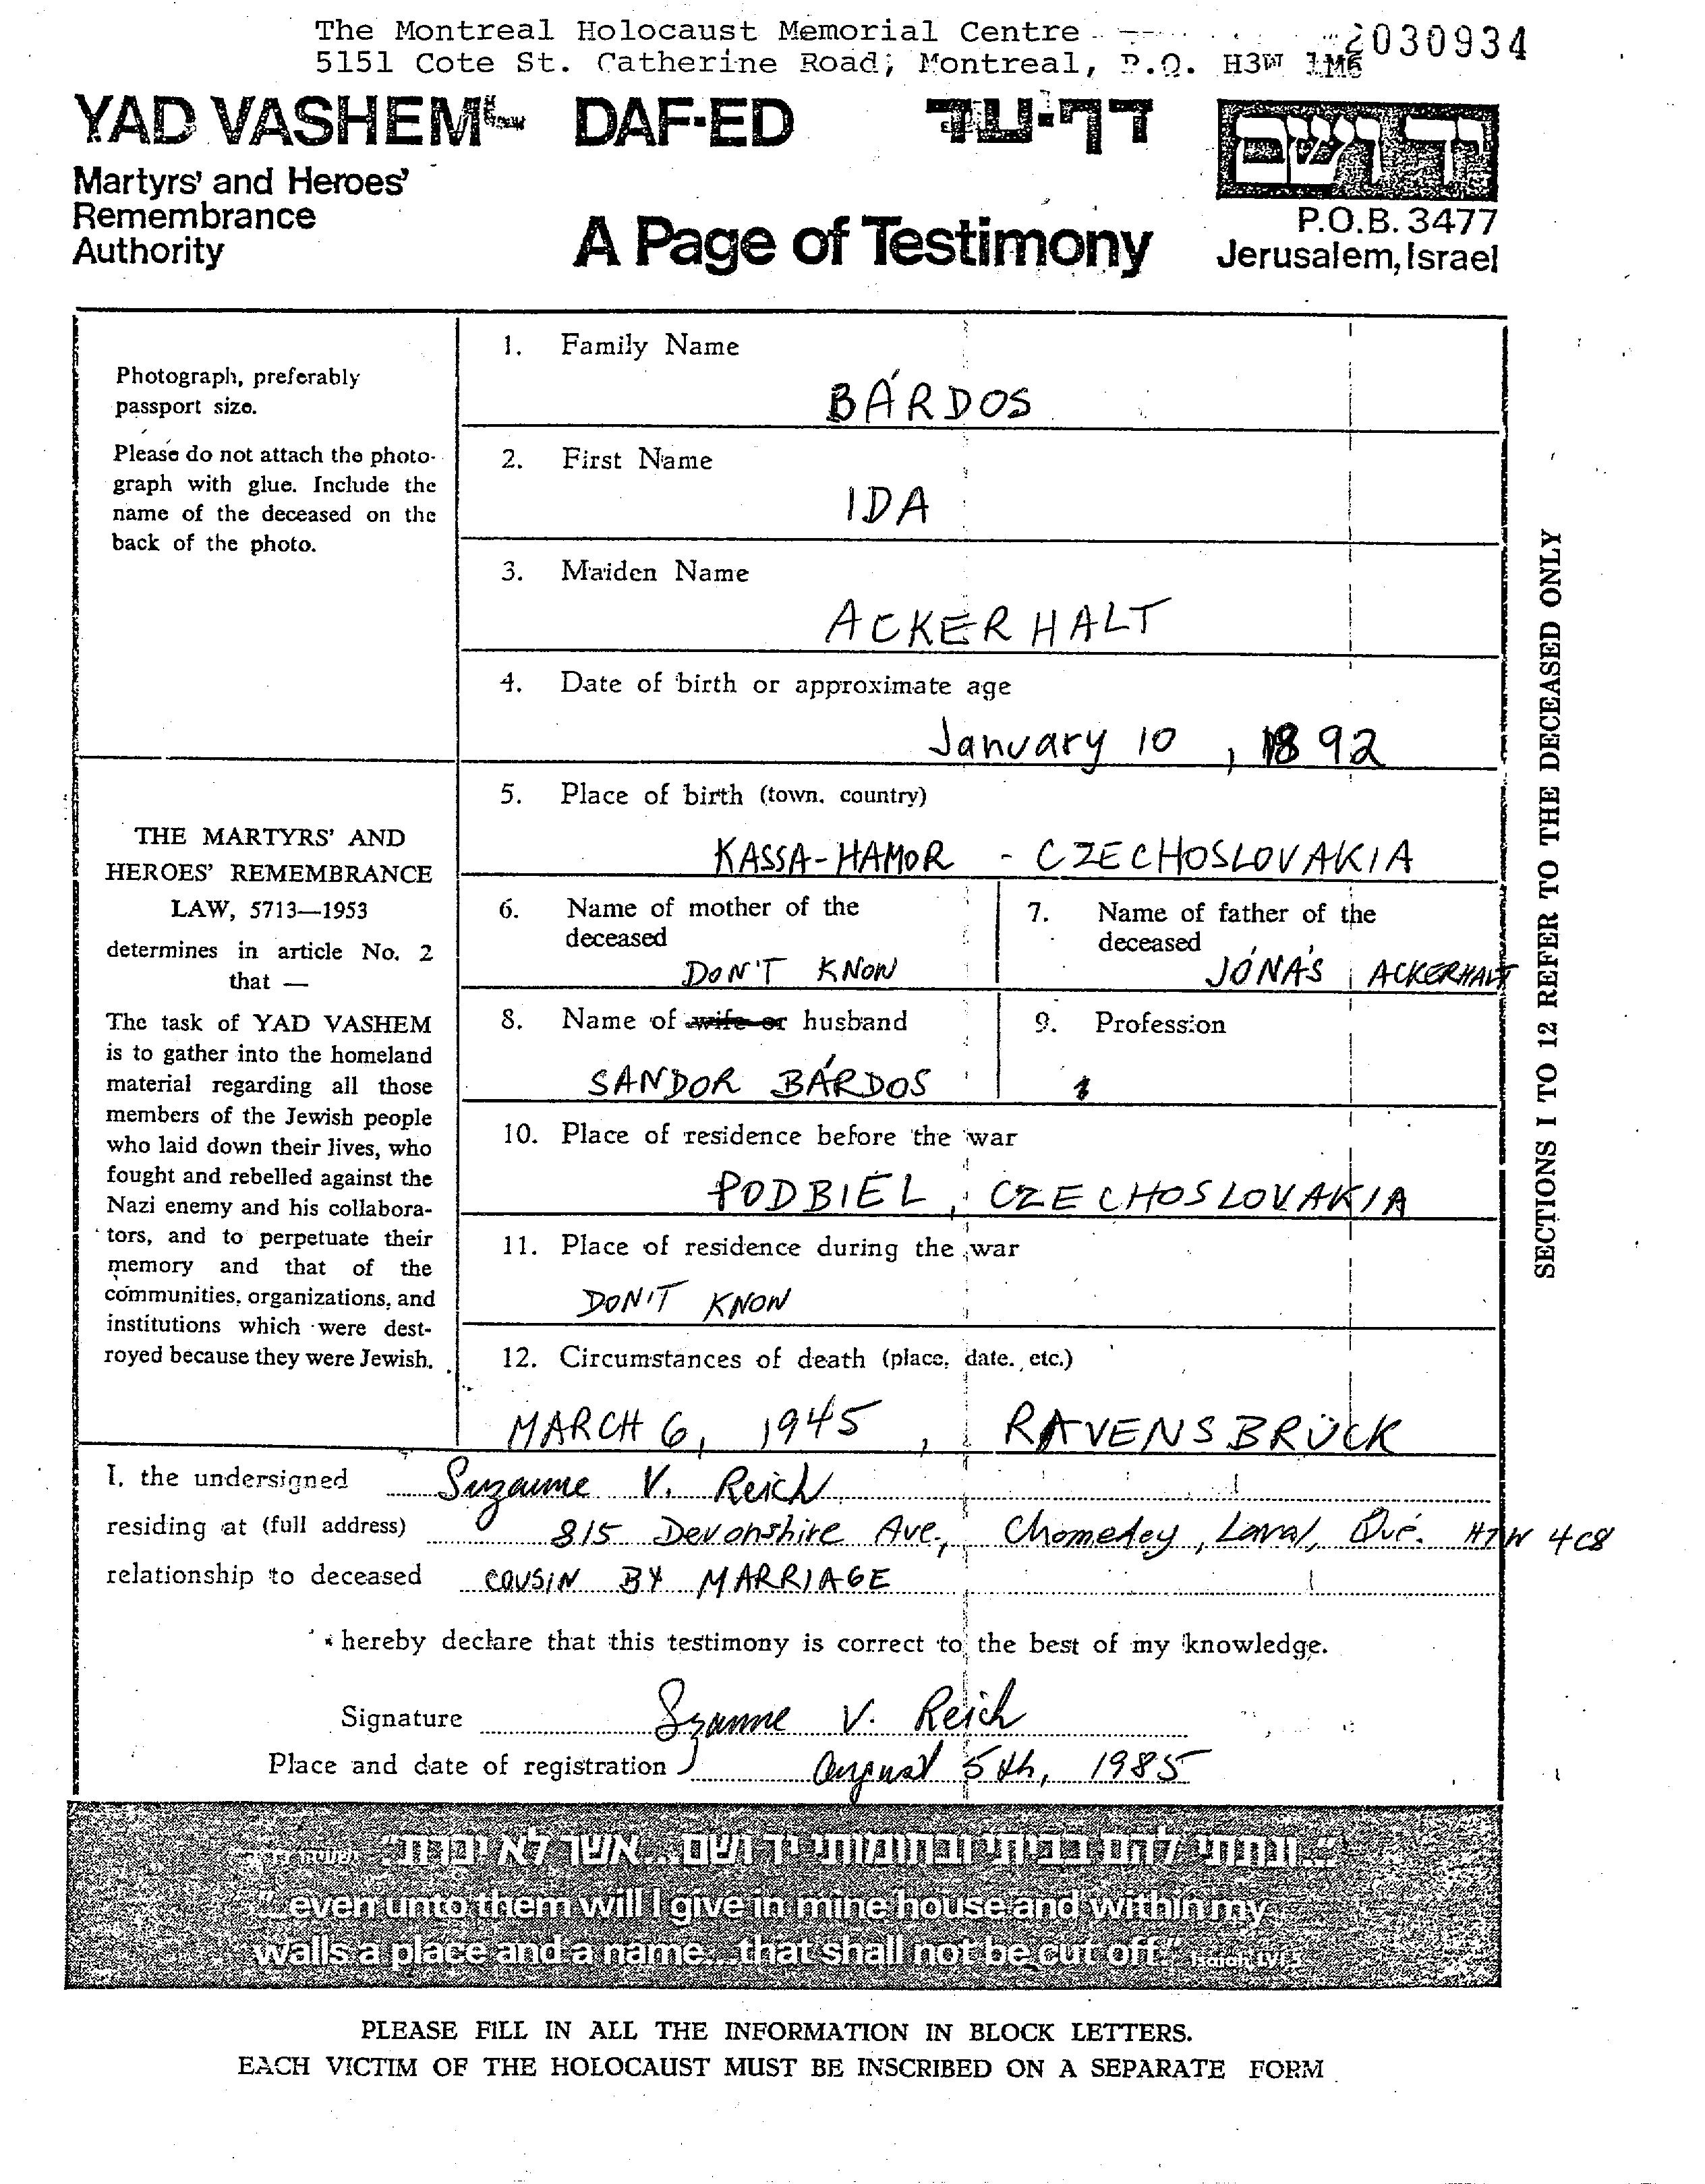 The Montreal Holocaust Memorial Centre
5151 Cote St. Catherine Road, Montreal, P.Q. H3W 1M6
2030934
YAD VASHEM DAF-ED דף-עד יד ושם
Martyrs' and Heroes'
Remembrance
Authority
A Page of Testimony
P.O.B. 3477
Jerusalem, Israel
Photograph, preferably
passport size.
Please do not attach the photo-
graph with glue. Include the
name of the deceased on the
back of the photo.
THE MARTYRS' AND
HEROES' REMEMBRANCE
LAW, 5713—1953
determines in article No. 2
that —
The task of YAD VASHEM
is to gather into the homeland
material regarding all those
members of the Jewish people
who laid down their lives, who
fought and rebelled against the
Nazi enemy and his collabora-
tors, and to perpetuate their
memory and that of the
communities, organizations, and
institutions which were dest-
royed because they were Jewish.
1. Family Name
BÁRDOS
2. First Name
IDA
3. Maiden Name
ACKERHALT
4. Date of birth or approximate age
January 10, 1892
5. Place of birth (town, country)
KASSA-HAMOR - CZECHOSLOVAKIA
6. Name of mother of the
deceased
DON'T KNOW
7. Name of father of the
deceased
JÓNÁS ACKERHALT
8. Name of wife or husband
SANDOR BÁRDOS
9. Profession
10. Place of residence before the war
PODBIEL, CZECHOSLOVAKIA
11. Place of residence during the war
DON'T KNOW
12. Circumstances of death (place, date, etc.)
MARCH 6, 1945, RAVENSBRÜCK
SECTIONS 1 TO 12 REFER TO THE DECEASED ONLY
I, the undersigned Suzanne V. Reich
residing at (full address) 815 Devonshire Ave, Chomedey, Laval, Qué. H7W 4C8
relationship to deceased COUSIN BY MARRIAGE
hereby declare that this testimony is correct to the best of my knowledge.
Signature Suzanne V. Reich
Place and date of registration August 5th, 1985
"...ונתתי להם בביתי ובחומותי יד ושם...אשר לא יכרת"
"...even unto them will I give in mine house and within my
walls a place and a name...that shall not be cut off." Isaiah, LVI,5
PLEASE FILL IN ALL THE INFORMATION IN BLOCK LETTERS.
EACH VICTIM OF THE HOLOCAUST MUST BE INSCRIBED ON A SEPARATE FORM